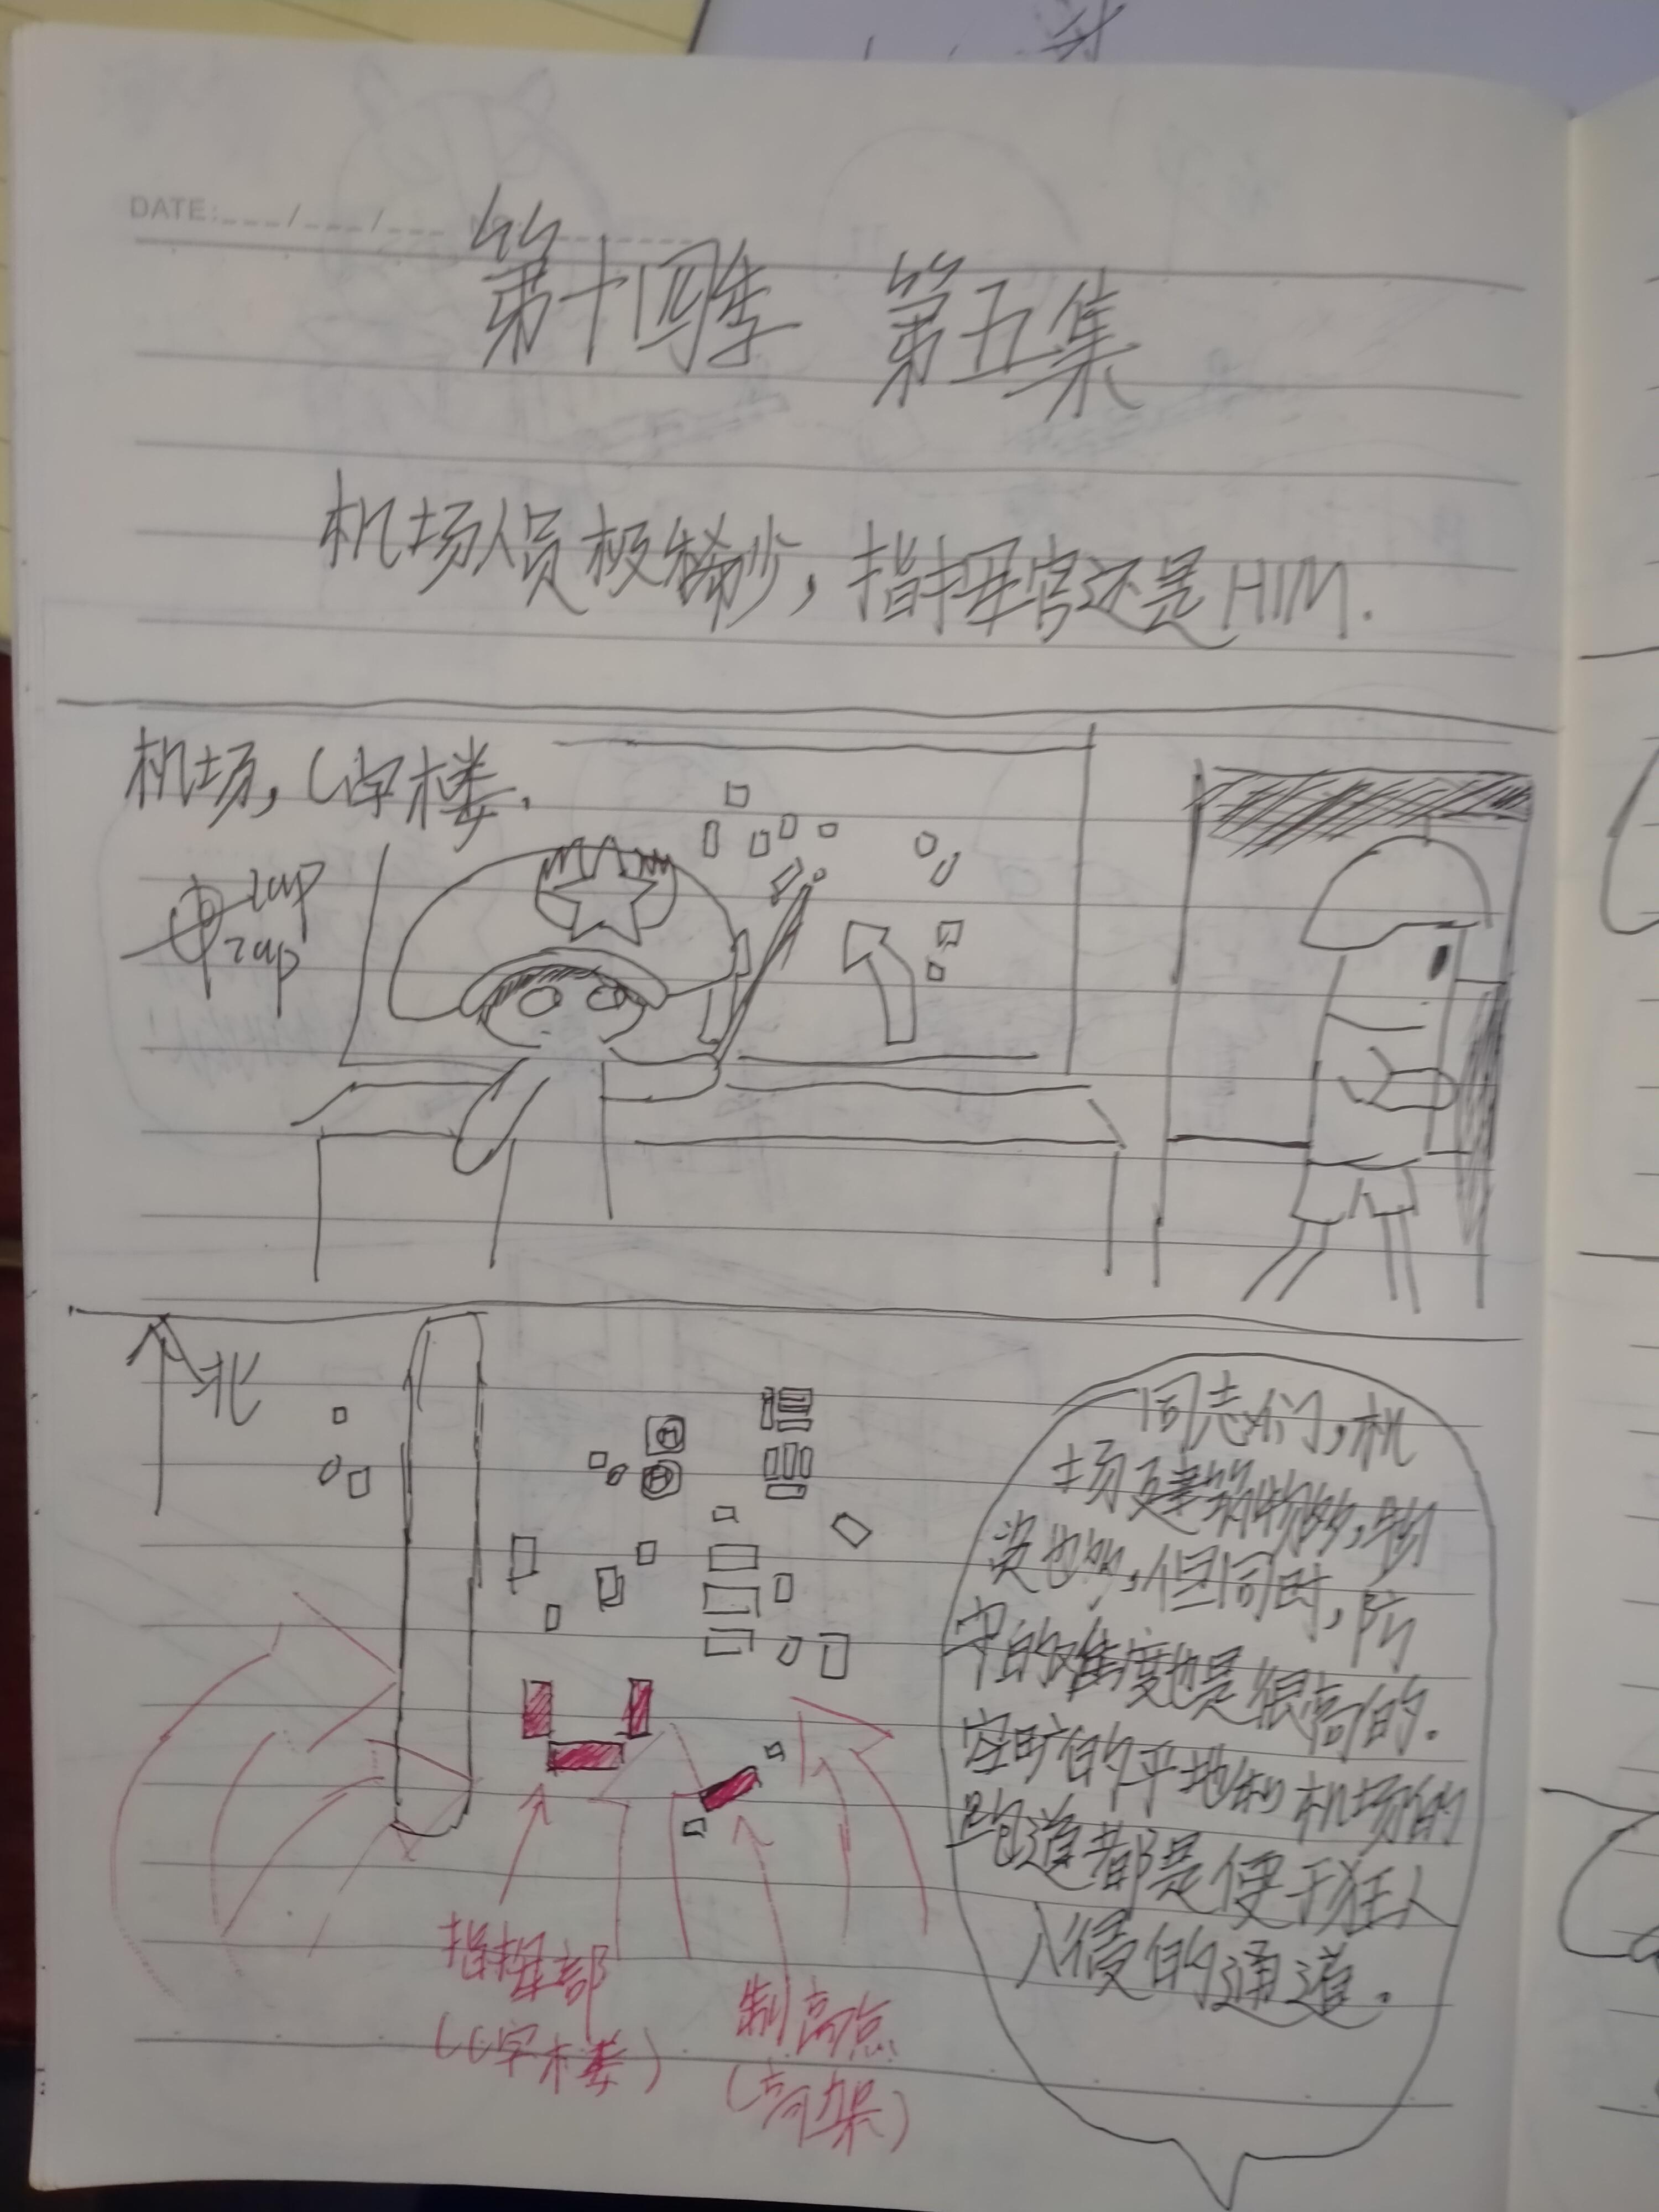 DATE:
第十四季 第五集
机场人员极稀少，指挥官还是HIM.
机场，C字楼.
zap
zap
北
H
H
同志们，机
场建筑物多，物
资也多，但同时，防
守的难度也是很高的.
空旷的平地和机场的
跑道都是便于狂人
入侵的通道.
指挥部
（C字楼）
制高点
（高架）